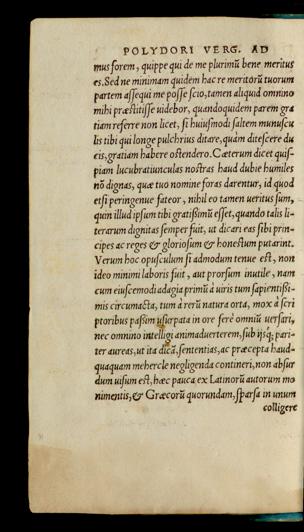 POLYDORI VERG. AD
mus forem, quippe qui de me plurimū bene meritus
es. Sed ne minimam quidem hac re meritorū tuorum
partem assequi me posse scio, tamen aliquid omnino
mihi præstitisse uidebor, quandoquidem parem gra
tiam referre non licet, si huiusmodi saltem munuscu
lis tibi qui longe pulchrius ditare, quàm ditescere du
cis, gratiam habere ostendero. Cæterum dicet quis⸗
piam lucubratiunculas nostras haud dubie humiles
nō dignas, quæ tuo nomine foras darentur, id quod
etsi peringenue fateor, nihil eo tamen ueritus sum,
quin illud ipsum tibi gratissimū esset, quando talis li⸗
terarum dignitas semper fuit, ut dicari eas sibi prin⸗
cipes ac reges & gloriosum & honestum putarint.
Verum hoc opusculum si admodum tenue est, non
ideo minimi laboris fuit, aut prorsum inutile, nam
cum eiuscemodi adagia primū à uiris tum sapientissi⸗
mis circumacta, tum à rerū natura orta, mox à scri
ptoribus passim usurpata in ore ferè omniū uersari,
nec omnino intelligi animaduerterem, sub ijsq́; pari⸗
ter aureas, ut ita dicā, sententias, ac præcepta haud⸗
quaquam mehercle negligenda contineri, non absur
dum uisum est, hæc pauca ex Latinorū autorum mo
nimentis, & Græcorū quorundam, sparsa in unum
colligere